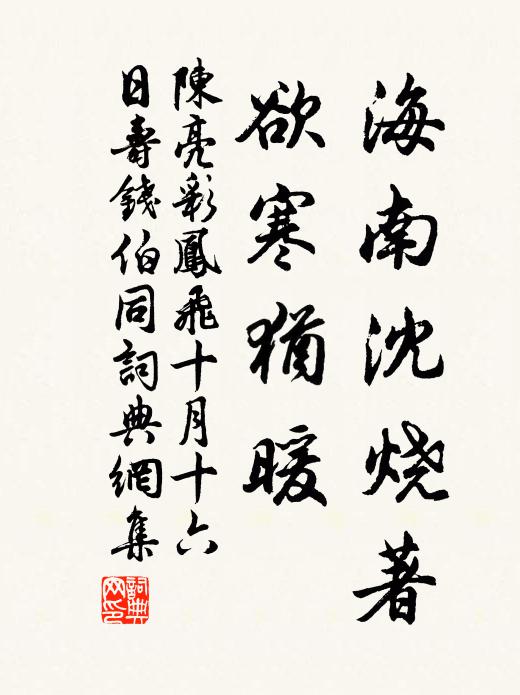 海南沈烧著
欲寒猶暖
陳亮彩鳳飛十月十六
日壽錢伯同詞典網集
詞典网印